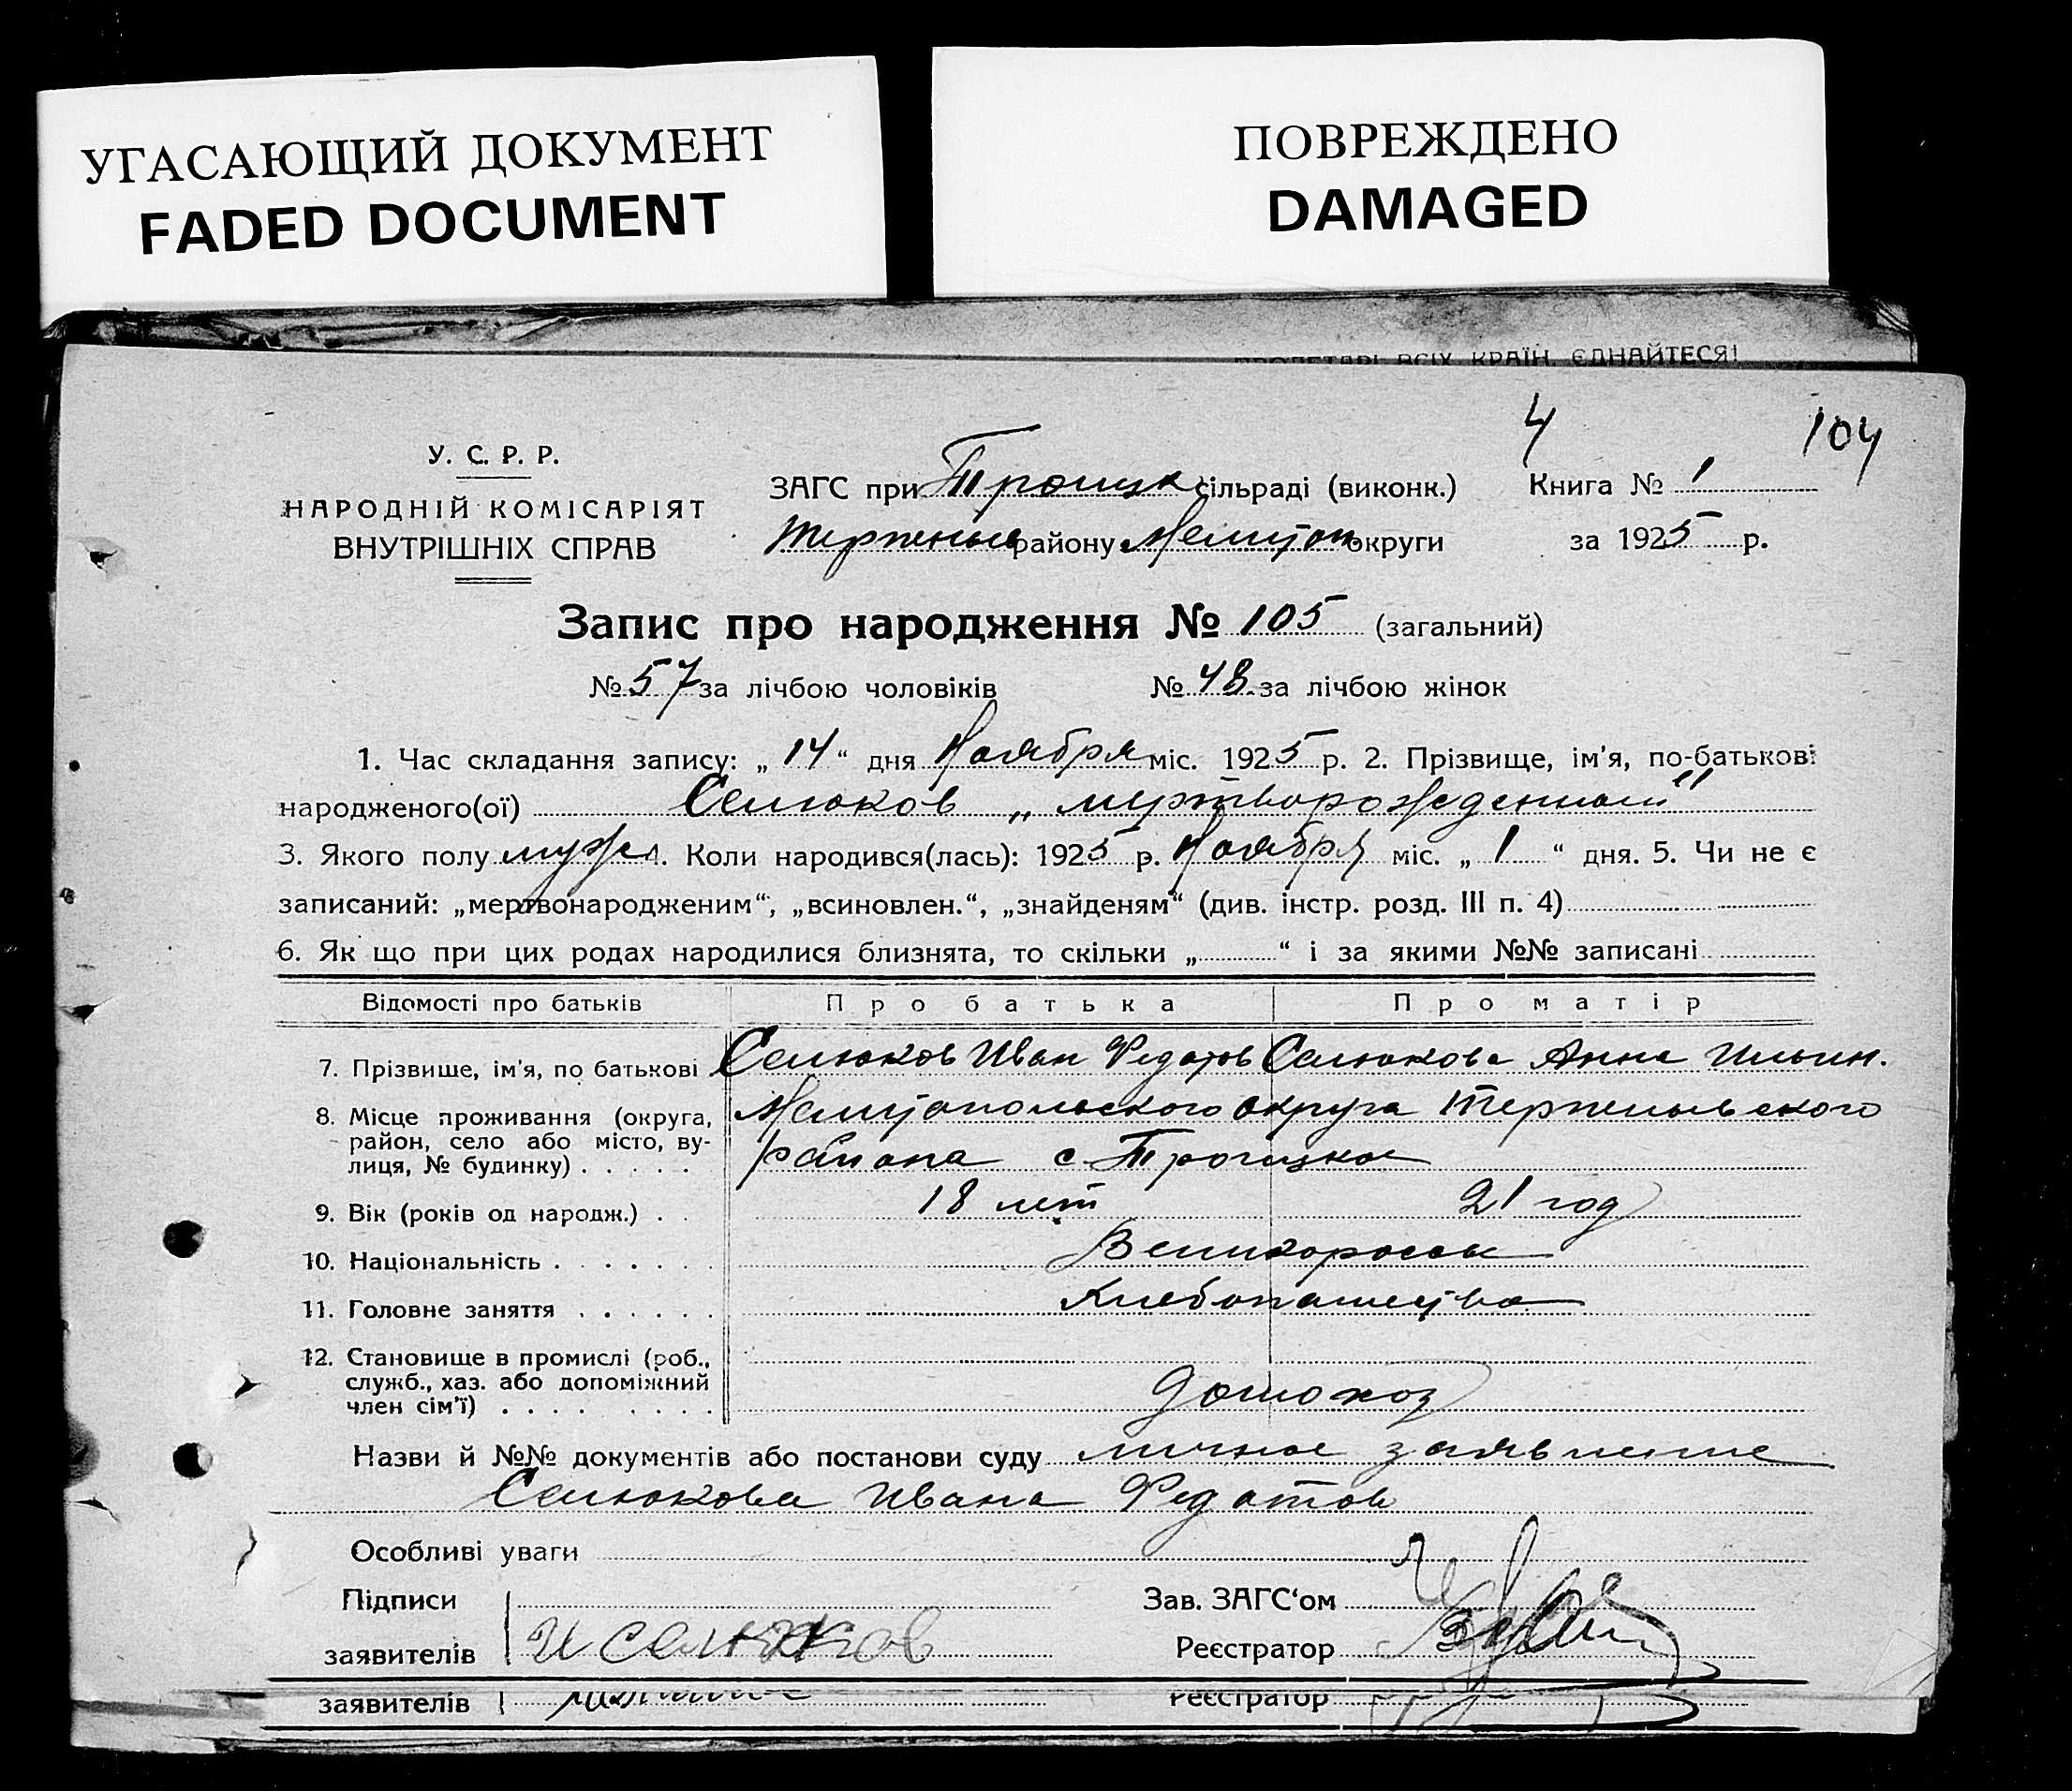 УГАСАЮЩИЙ ДОКУМЕНТ
FADED DOCUMENT
ПОВРЕЖДЕНО
DAMAGED
ПРОЛЕТАРІ ВСІХ КРАЇН, ЄДНАЙТЕСЯ!
4
104
У. С. Р. Р.
НАРОДНІЙ КОМІСАРІЯТ
ВНУТРІШНІХ СПРАВ
ЗАГС при Троицк сільраді (виконк.) Книга № 1
району Мелитоп округи за 1925 р.
Запис про народження № 105 (загальний)
№ 57 за лічбою чоловіків № 48 за лічбою жінок
1. Час складання запису: „ 14 “ дня Ноября міс. 1925 р. 2. Прізвище, ім'я, по-батькові
народженого(ої) Селюков „мертворожденный"
3. Якого полу муж 4. Коли народився(лась): 1925 р. Ноября міс. „ 1 “ дня. 5. Чи не є
записаний: „мертвонародженим“, „всиновлен.“, „знайденям“ (див. інстр. розд. III п. 4)
6. Як що при цих родах народилися близнята, то скільки „ “ і за якими №№ записані
Відомості про батьків Про батька Про матір
7. Прізвище, ім'я, по батькові Селюков Иван Федотов Селюкова Анна Ильин.
8. Місце проживання (округа, Мелитопольского округа
район, село або місто, ву- района с. Троицкое
лиця, № будинку)
9. Вік (років од народж.) 18 лет 21 год
10. Національність Великороссы
11. Головне заняття Хлебопашество
12. Становище в промислі (роб.,
служб., хаз. або допоміжний домохоз
член сім'ї)
Назви й №№ документів або постанови суду личное заявление
Селюкова Ивана Федотов
Особливі уваги
Підписи Зав. ЗАГС‘ом
заявителів И Селюков Реєстратор
заявителів Реєстратор